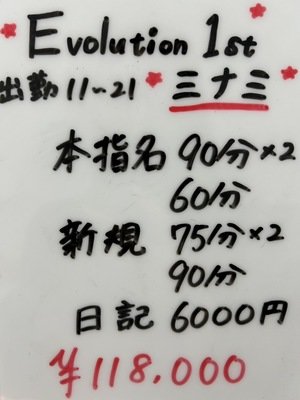 Evolution 1st
出勤 11〜21 三ナミ
本指名 90分×2
60分
新規 75分×2
90分
日記 6000円
¥118.000